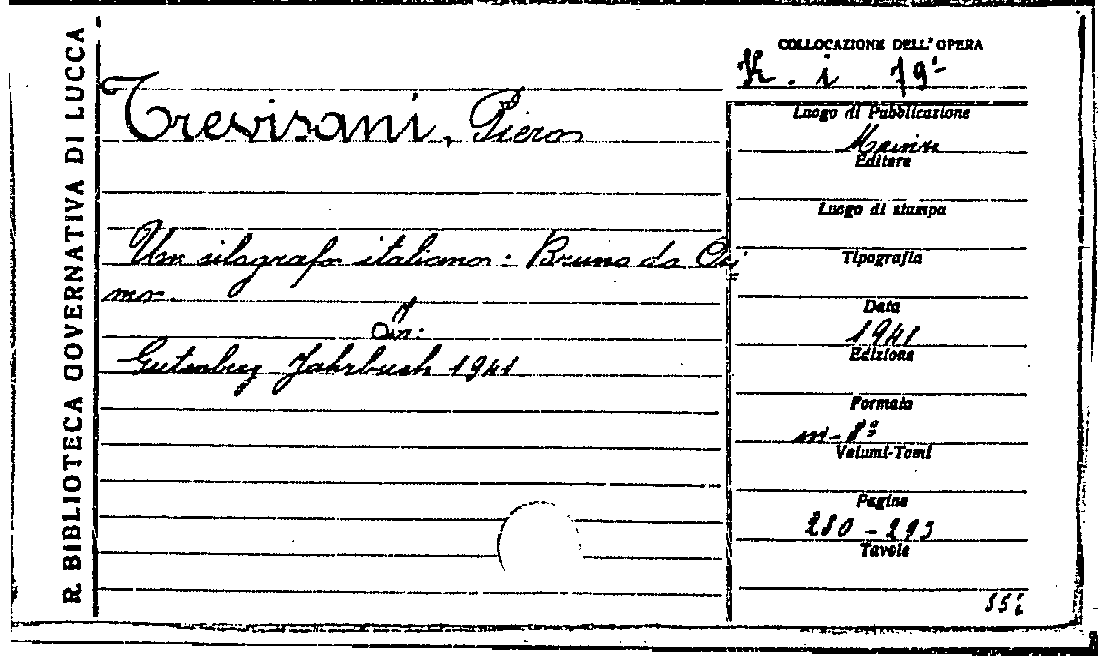 R. BIBLIOTECA GOVERNATIVA DI LUCCA
Trevisani, Piero
Un silografo italiano: Bruno da Osi
mo.
in:
Gutenberg Jahrbuch 1941
COLLOCAZIONE DELL'OPERA
K. i 79
Luogo di Pubblicazione
Mainz
Editore
Luogo di stampa
Tipografia
Data
1941
Edizione
Formato
in-8º
Volumi-Tomi
Pagine
280-293
Tavole